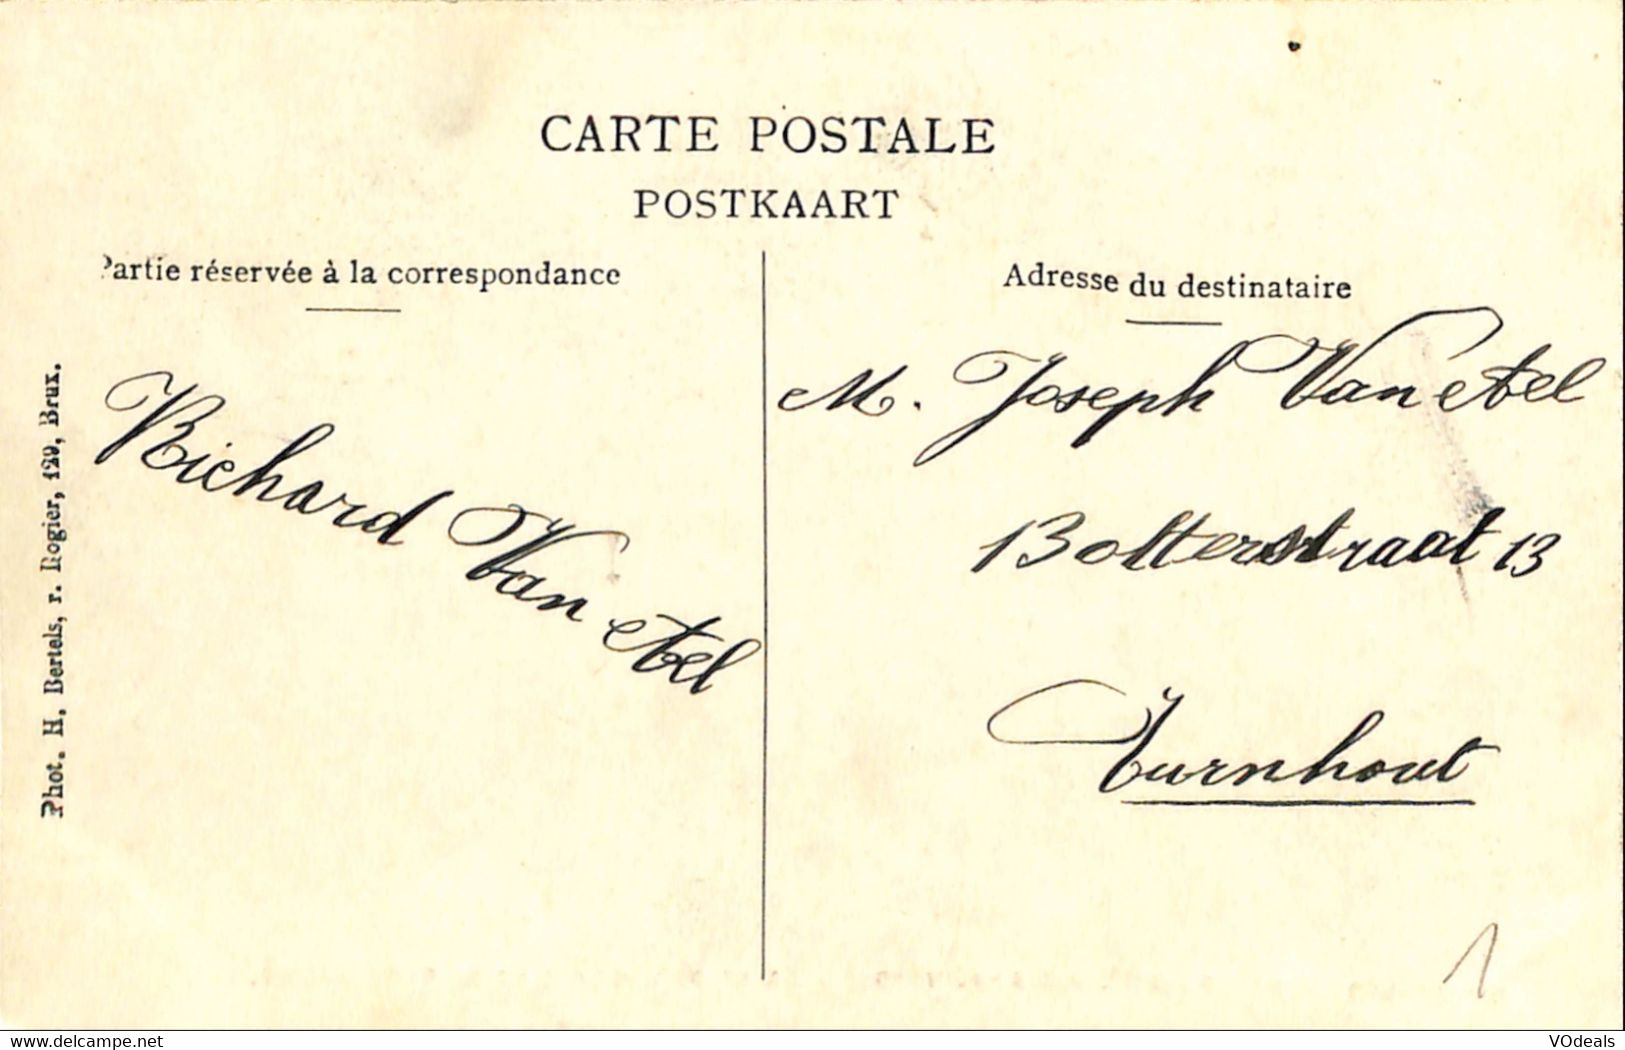 CARTE POSTALE
POSTKAART
Partie réservée à la correspondance
Adresse du destinataire
Richard Van Etel
M. Joseph Van Etel
Bolterstraat 13
Turnhout
Phot. H. Bertels, r. Rogier, 129, Brux.
1
www.delcampe.net
VOdeals